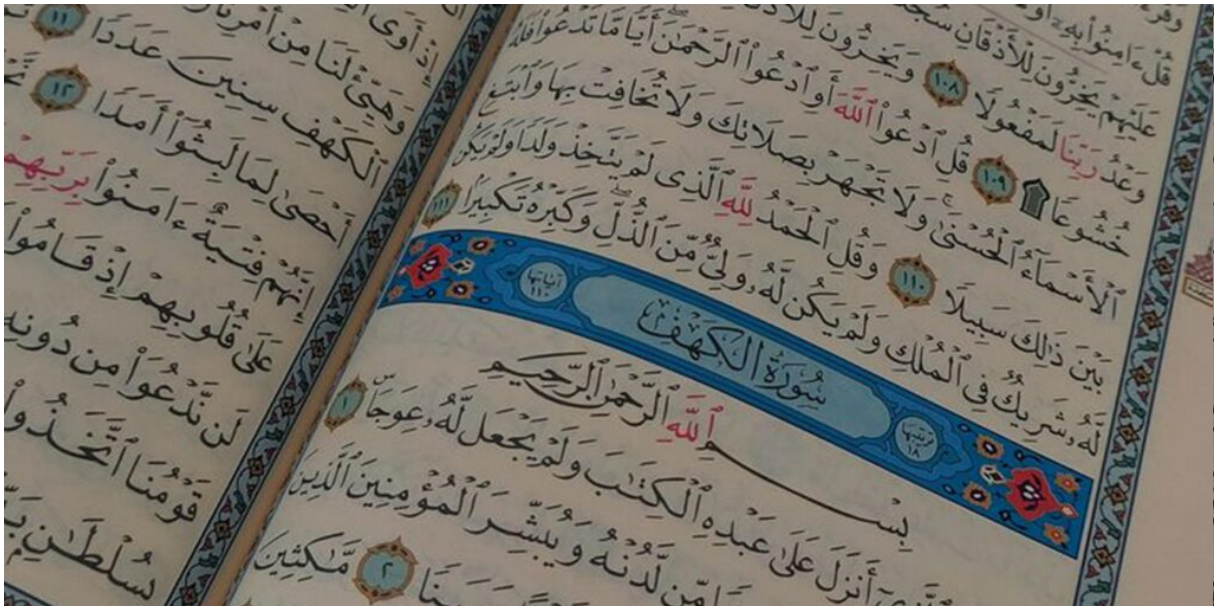 قُلْ ءَامِنُوا۟ بِهِۦٓ أَوْ
عَلَيْهِمْ يَخِرُّونَ لِلْأَذْقَانِ سُجَّدًا
وَعْدُ رَبِّنَا لَمَفْعُولًا ١٠٨ وَيَخِرُّونَ لِلْأَذْقَانِ
خُشُوعًا ١٠٩ قُلِ ٱدْعُوا۟ ٱللَّهَ أَوِ ٱدْعُوا۟ ٱلرَّحْمَٰنَ أَيًّا مَّا تَدْعُوا۟ فَلَهُ
ٱلْأَسْمَآءُ ٱلْحُسْنَىٰ وَلَا تَجْهَرْ بِصَلَاتِكَ وَلَا تُخَافِتْ بِهَا وَٱبْتَغِ
بَيْنَ ذَٰلِكَ سَبِيلًا ١١٠ وَقُلِ ٱلْحَمْدُ لِلَّهِ ٱلَّذِى لَمْ يَتَّخِذْ وَلَدًا وَلَمْ يَكُن
لَّهُۥ شَرِيكٌ فِى ٱلْمُلْكِ وَلَمْ يَكُن لَّهُۥ وَلِىٌّ مِّنَ ٱلذُّلِّ وَكَبِّرْهُ تَكْبِيرًۢا ١١١
ترتيبها ١٨ سُورَةُ الكَهْفِ آياتها ١١٠
بِسْمِ ٱللَّهِ ٱلرَّحْمَٰنِ ٱلرَّحِيمِ
أَنزَلَ عَلَىٰ عَبْدِهِ ٱلْكِتَٰبَ وَلَمْ يَجْعَل لَّهُۥ عِوَجَا ١
مِّن لَّدُنْهُ وَيُبَشِّرَ ٱلْمُؤْمِنِينَ ٱلَّذِينَ
٢ مَّٰكِثِينَ
إِذْ أَوَى
وَهَيِّئْ لَنَا مِنْ أَمْرِنَا
ٱلْكَهْفِ سِنِينَ عَدَدًا ١١
أَحْصَىٰ لِمَا لَبِثُوٓا۟ أَمَدًا ١٢
إِنَّهُمْ فِتْيَةٌ ءَامَنُوا۟ بِرَبِّهِمْ
عَلَىٰ قُلُوبِهِمْ إِذْ قَامُوا۟
لَن نَّدْعُوَا۟ مِن دُونِهِ
قَوْمُنَا ٱتَّخَذُوا۟
بِسُلْطَٰنٍۭ